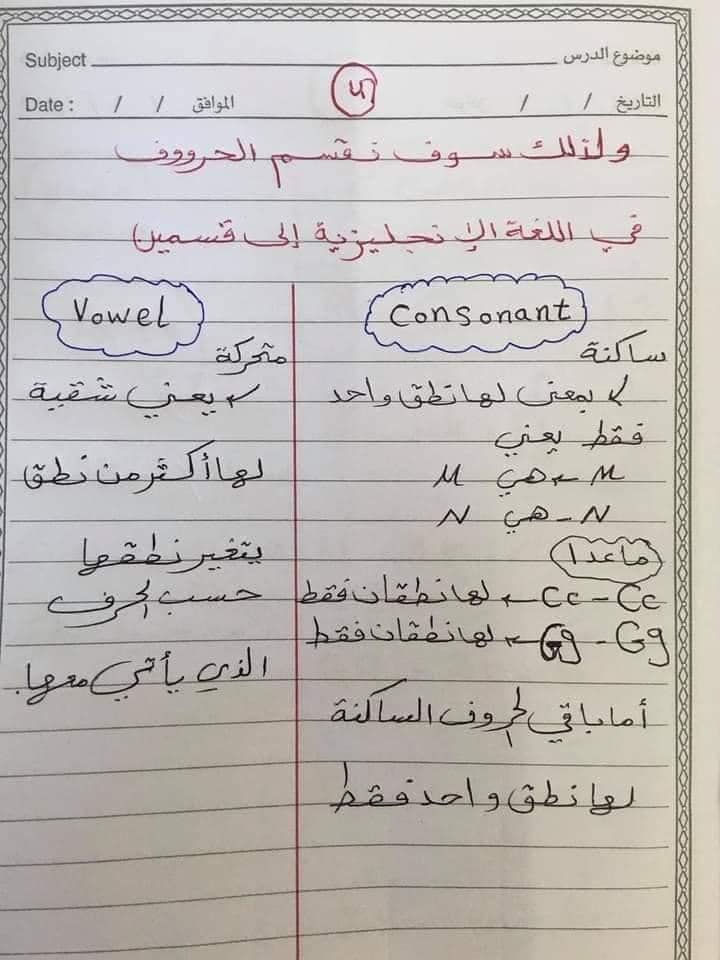 موضوع الدرس Subject
التاريخ / / الموافق / / Date :
ولذلك سوف نقسم الحرووف
في اللغة الإنجليزية إلى قسمين
Consonant
ساكنة
بمعنى لها نطق واحد
فقط يعني
M ← هي M
N - هي N
ماعدا
Cc - Cc ← لها نطقان فقط
Gg - Gg ← لها نطقان فقط
أما باقي الحروف الساكنة
لها نطق واحد فقط
Vowel
متحركة
يعني شقية
لها أكثر من نطق
يتغير نطقها
حسب الحرف
الذي يأتي معها.